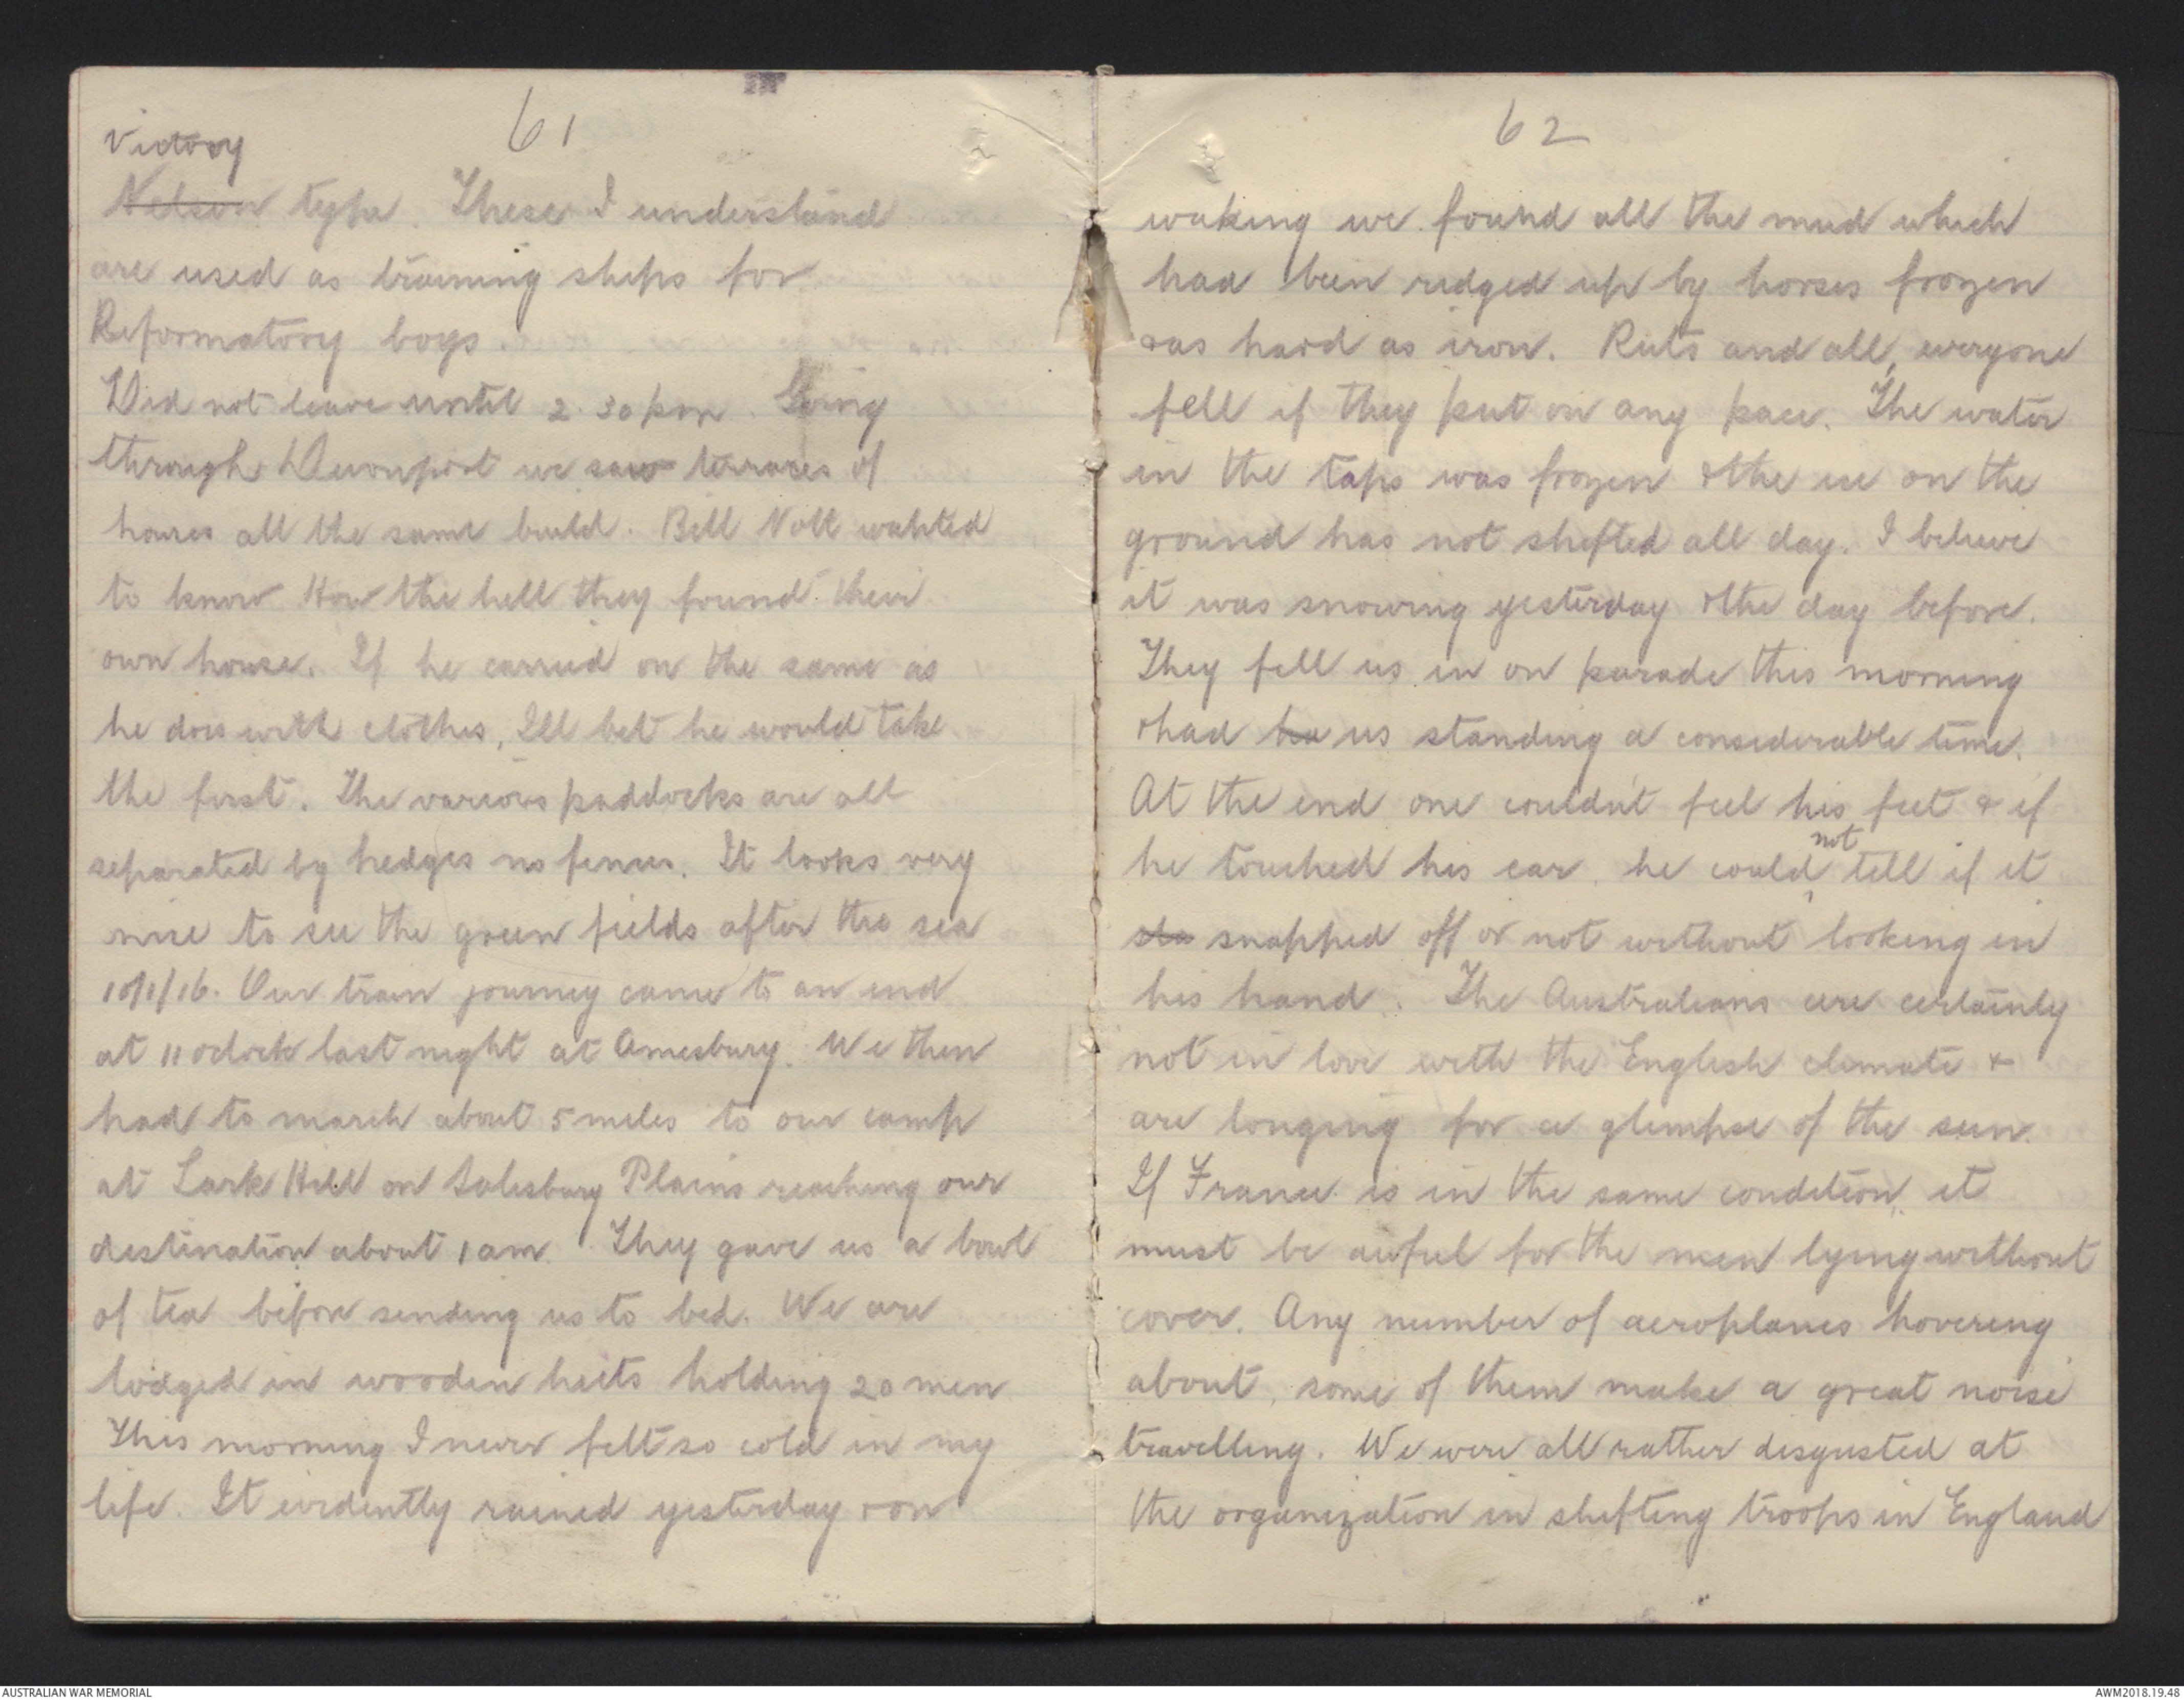 61
Victory
Nelson type. These I understand
are used as training ships for
Reformatory boys.
Did not leave until 2.30 pm. Going
through Devonport we saw terraces of
houses all the same build. Bill Nott wanted
to know How the hell they found their
own house. If he carried on the same as
he does with clothes, Ill bet he would take
the first. The various paddocks are all
separated by hedges no fences. It looks very
nice to see the green fields after the sea
10/1/16. Our train journey came to an end
at 11 oclock last night at Amesbury. We then
had to march about 5 miles to our camp
at Lark Hill on Salisbury Plains reaching our
destination about 1 am. They gave us a bowl
of tea before sending us to bed. We are
lodged in wooden huts holding 20 men
This morning I never felt so cold in my
life. It evidently rained yesterday & on
62
waking we found all the mud which
had been ridged up by horses frozen
as hard as iron. Ruts and all, everyone
fell if they put on any pace. The water
in the taps was frozen & the ice on the
ground has not shifted all day. I believe
it was snowing yesterday & the day before.
They fell us in on parade this morning
& had ha us standing a considerable time.
At the end one couldn't feel his feet & if
he touched his ear he could not tell if it
sta snapped off or not without looking in
his hand. The Australians are certainly
not in love with the English climate &
are longing for a glimpse of the sun.
If France is in the same condition, it
must be awful for the men lying without
cover. Any number of aeroplanes hovering
about, some of them make a great noise
travelling. We were all rather disgusted at
the organization in shifting troops in England
AUSTRALIAN WAR MEMORIAL
AWM2018.19.48